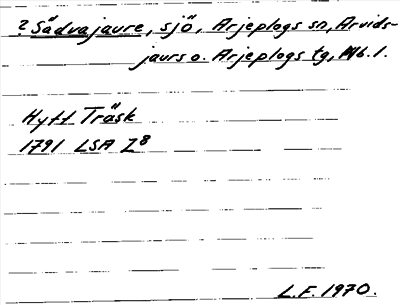 ? Sädvajaure, sjö, Arjeplogs sn, Arvids-
jaurs o. Arjeplogs tg, Nb. l.
Hytt Träsk
1791 LSA Z8
L.F. 1970.